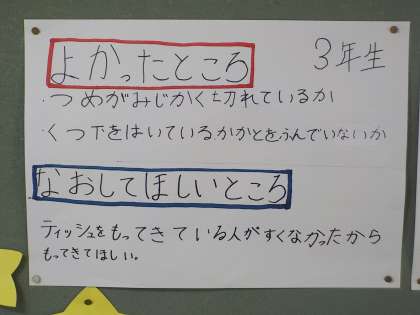 3年生
よかったところ
・つめがみじかく切れているか
・くつ下をはいているかかとをうんでいないか
なおしてほしいところ
ティッシュをもってきている人がすくなかったから
もってきてほしい。